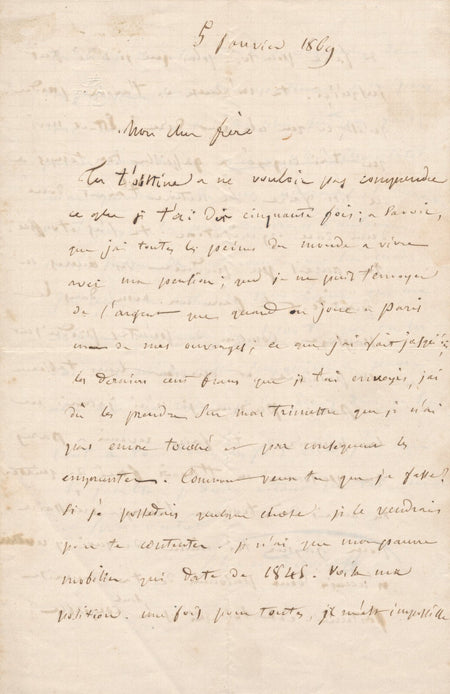 5 janvier 1869
Mon cher frère
Tu t'obstine a ne vouloir pas comprendre
ce que je t'ai dis cinquante fois; a savoir,
que j'ai toutes les peines du monde a vivre
avec ma pension; que je ne puis t'envoyer
de l'argent que quand on joue a Paris
un de mes ouvrages, ce que j'ai fait jusqu'ici;
les derniers cent francs que je t'ai envoyés, j'ai
dû les prendre sur mon trimestre que je n'ai
pas encore touché et par conséquent les
emprunter. Comment veux tu que je fasse?
Si je possédais quelque chose je le vendrais
pour te contenter. je n'ai que mon pauvre
mobilier qui date de 1845. Voila ma
position. une fois pour toutes, il m'est impossible